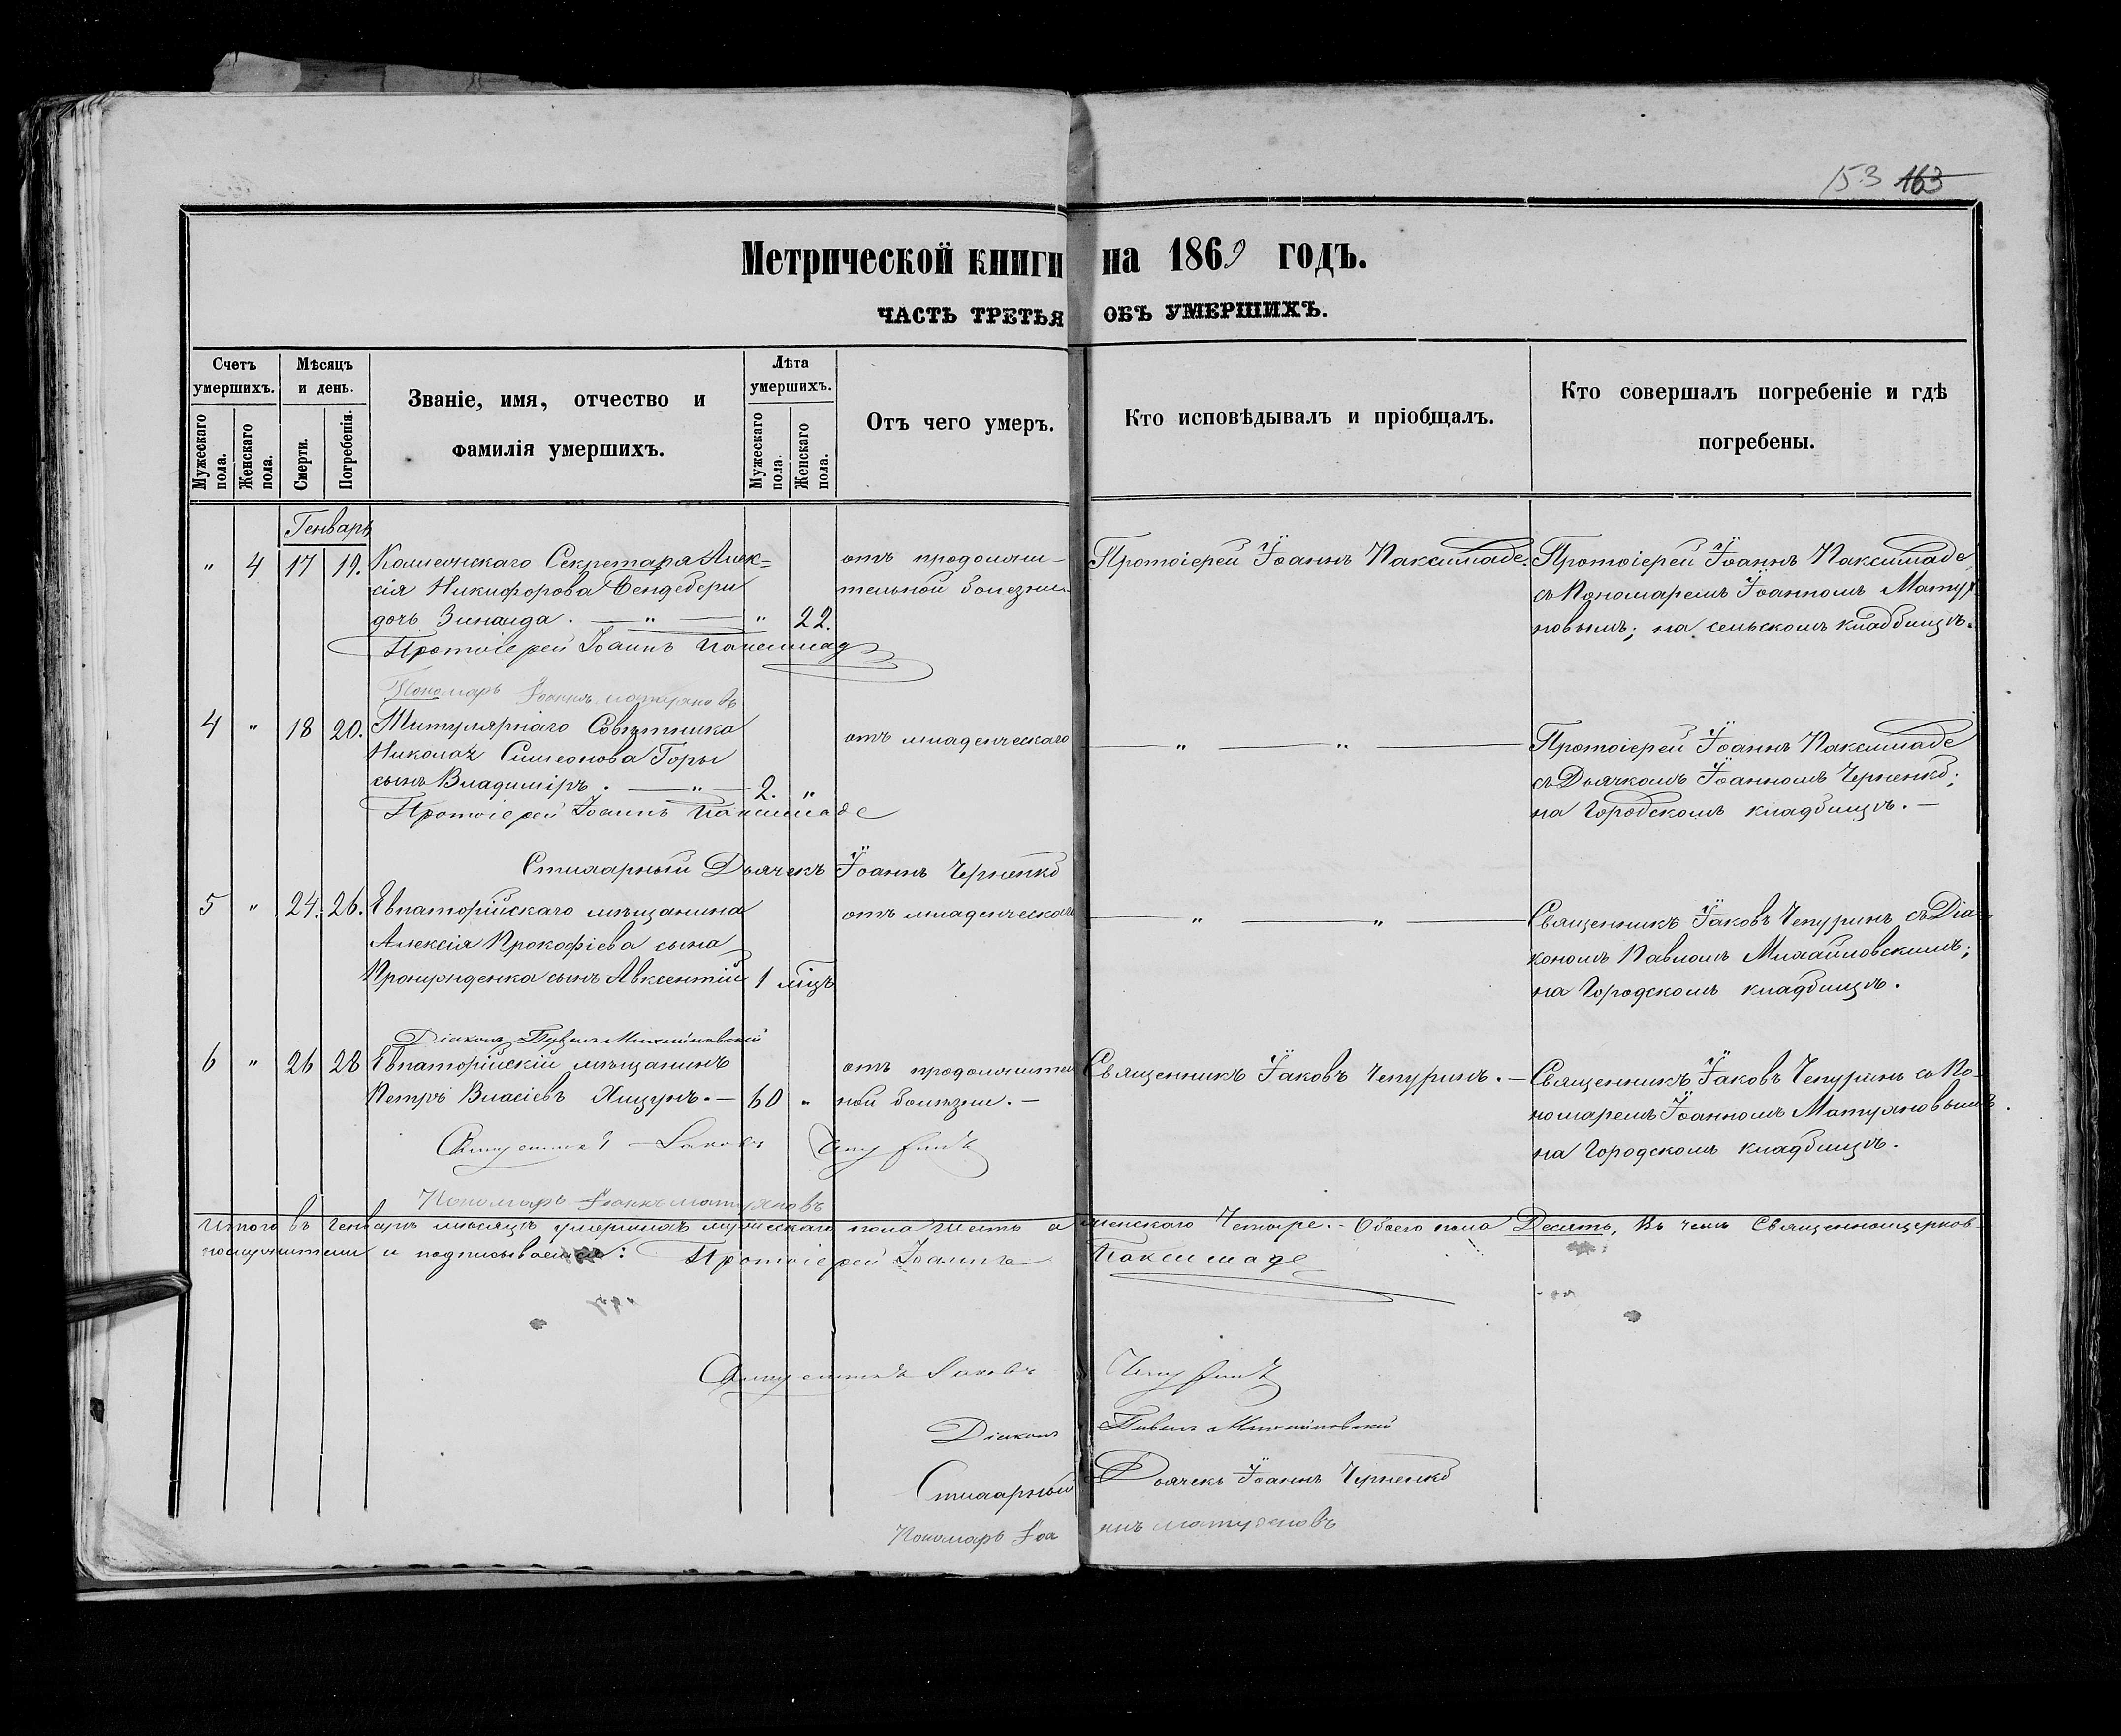 153 163
Метрической книги на 1869 годъ.
ЧАСТЬ ТРЕТЬЯ ОБЪ УМЕРШИХЪ.
Счетъ умершихъ.
Мужескаго пола.
Женскаго пола.
Мѣсяцъ и день.
Смерти.
Погребенія.
Званіе, имя, отчество и
фамилія умершихъ.
Лѣта умершихъ.
Мужескаго пола.
Женскаго пола.
Отъ чего умеръ.
Кто исповѣдывалъ и пріобщалъ.
Кто совершалъ погребеніе и гдѣ
погребены.
Генварь
" 4 17 19. Коллежскаго Секретаря Алек=
сія Никифорова
дочь Зинаида. — " — " 22.
отъ продолжи-
тельной болезни
Протоіерей Іоаннъ Паксимаде.
Протоіерей Іоаннъ Паксимаде,
съ Пономаремъ Іоанномъ Матуя
новымъ; на сельскомъ кладбищѣ.
Протоіерей Іоаннъ Паксимад
Пономарь Іоаннъ Матуяновъ
4 " 18 20. Титулярнаго Совѣтника
Николая Симеонова Горы
сынъ Владиміръ. — " — 2. "
отъ младенческаго
— " — " —
Протоіерей Іоаннъ Паксимаде
съ Дьячкомъ Іоанномъ Черненко;
на Городскомъ кладбищѣ. —
Протоіерей Іоаннъ Паксимаде
Стихарный Дьячекъ Іоаннъ Черненко
5 " 24. 26. Евпаторійскаго мѣщанина
Алексія Прокофіева сына
сынъ Авксентій 1 мѣц
отъ младенческаго
— " — " —
Священникъ Іаковъ Чепуринъ, съ Діа-
кономъ Павломъ Михайловскимъ;
на Городскомъ кладбищѣ.
Діаконъ Павелъ Михайловскій
6 " 26 28 Евпаторійскій мѣщанинъ
Петръ Власіевъ Ящунъ. — 60 "
отъ продолжитель
ной болѣзни. —
Священникъ Іаковъ Чепуринъ. —
Священникъ Іаковъ Чепуринъ съ По-
номаремъ Іоанномъ Матуяновымъ.
на Городскомъ кладбищѣ.
Священникъ Іаковъ Чепуринъ
Пономарь Іоаннъ Матуяновъ
Итого въ Генварѣ мѣсяцѣ умершихъ мужескаго пола шесть а женскаго Четыре. - Обоего пола Десять, Въ чемъ Священноцерков-
нослужители и подписываемся: Протоіерей Іоаннъ Паксимаде
Священникъ Іаковъ Чепуринъ
Діаконъ Павелъ Михайловскій
Стихарный Дьячекъ Іоаннъ Черненко
Пономарь Іоаннъ Матуяновъ